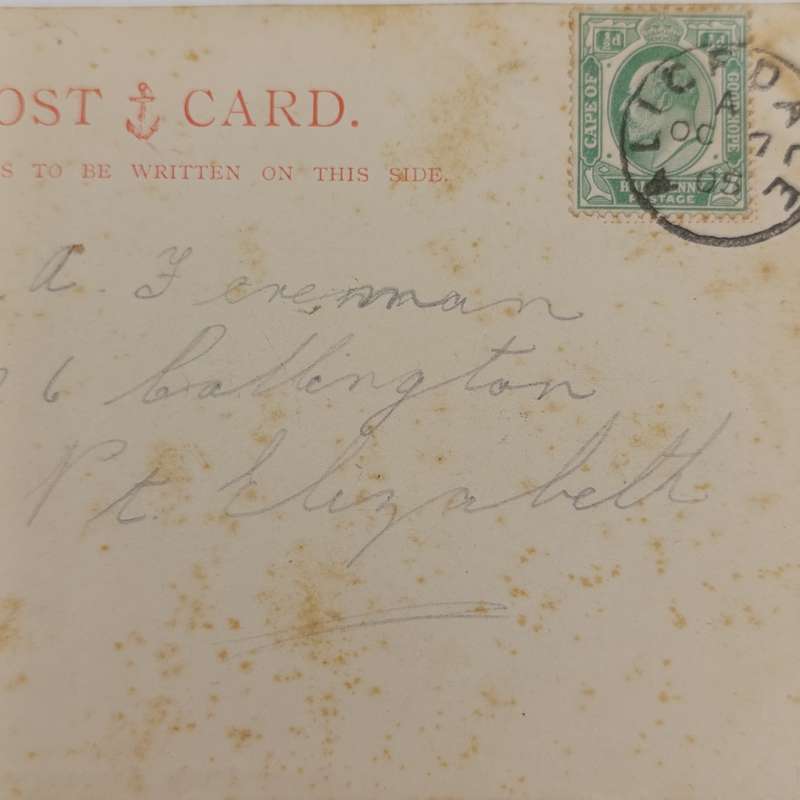 OST CARD.
S TO BE WRITTEN ON THIS SIDE.
½d ½d
CAPE OF GOOD HOPE
HALF PENNY
POSTAGE
ALICEDALE
A
OC 7
05
A. Fereman
6 Collington
Pt. Elizabeth